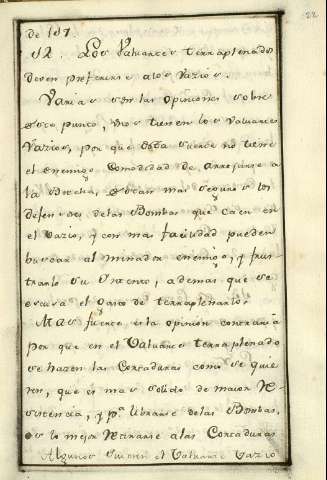 22
de 107
52. Los Valuartes terraplenados
deven preferirse alos Vazios.
Varias son las opiniones sobre
este punto, unos tienen los Valuartes
Vazios, por que de esta suerte no tiene
el enemigo Comodidad de arrojarse a
la Brecha, estan mas seguros los
defensores delas Bombas que Caen en
el Vazio, y con mas facilidad pueden
buscar al minador enemigo, y frus
trarlo su Yntento, ademas que se
escusa el gasto de terraplenarlos.
Mas fuerte es la opinion contraria
por que en el Valuarte terraplenado
se hazen las Cortaduras como se quie
ren, que es mas solido de maior Re-
sistencia, y pª librarse delas Bombas,
es lo mejor Retirarse alas Cortaduras
Algunos quieren el Valuarte Vazio